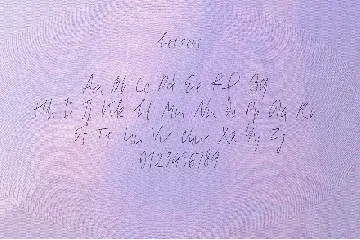 Letters
Aa Bb Cc Dd Ee Ff Gg
Hh Ii Jj Kk Ll Mm Nn Oo Pp Qq Rr
Ss Tt Uu Vv Ww Xx Yy Zz
0123456789